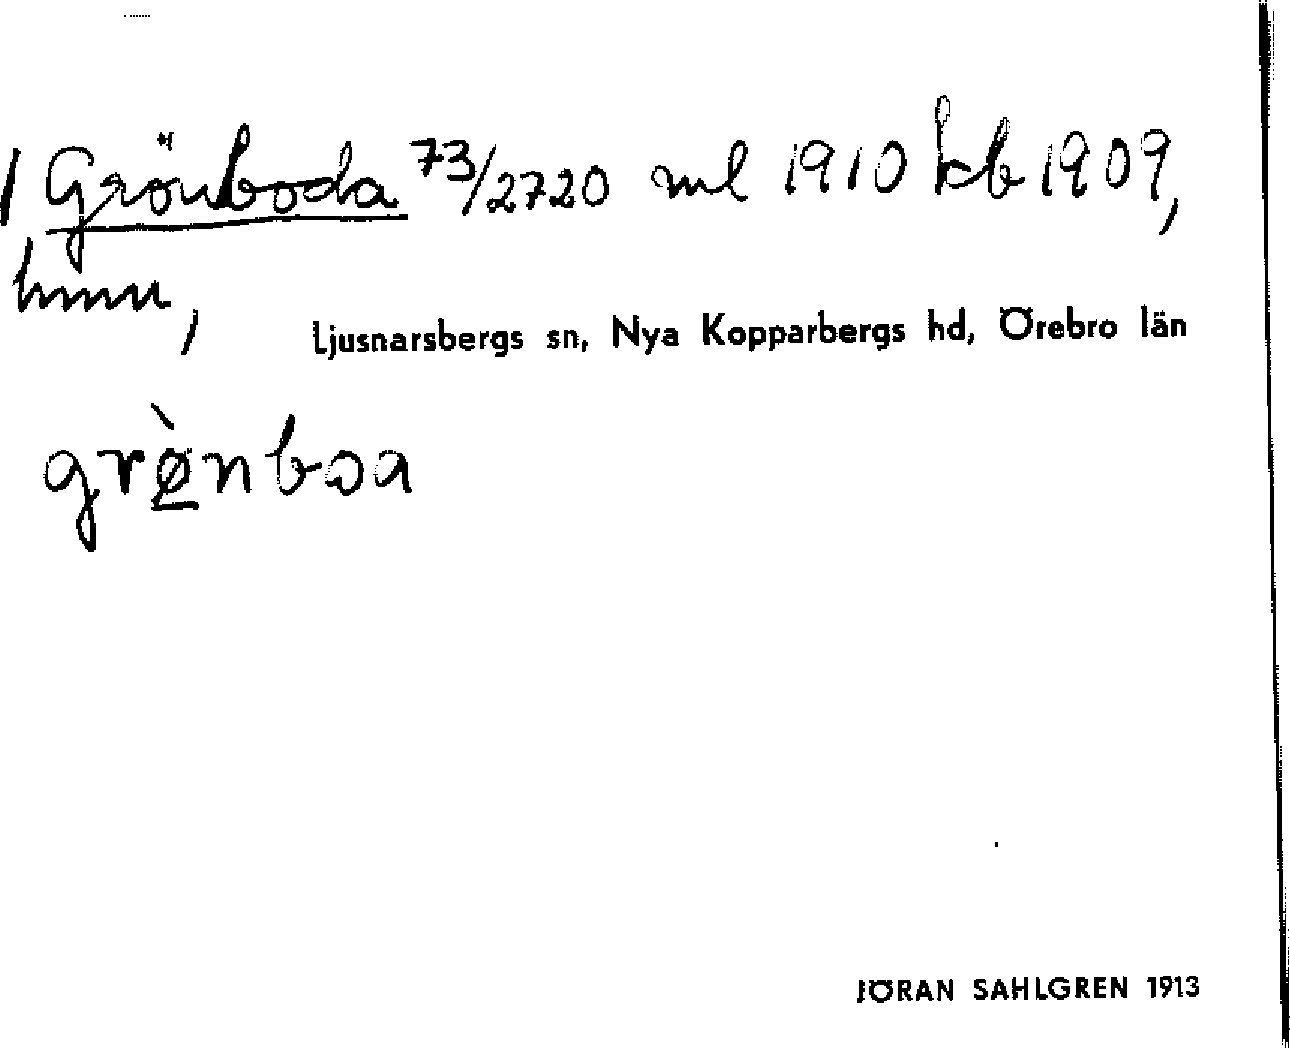 Grönboda 73/2720 ml 1910 kb 1909,
hmn,
Ljusnarsbergs sn, Nya Kopparbergs hd, Örebro län
grø̲̀nboa
JÖRAN SAHLGREN 1913